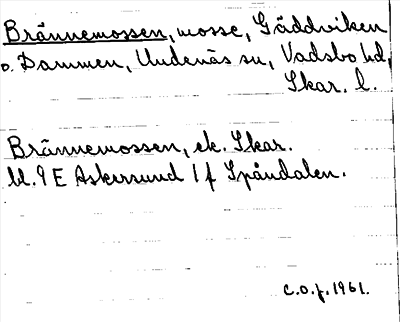 Brännemossen, mosse, Gäddviken
o. Dammen, Undenäs sn, Vadsbo hd,
Skar. l.
Brännemossen, ek. Skar.
bl. 9 E Askersund 1 f Spåndalen.
c.o.f. 1961.